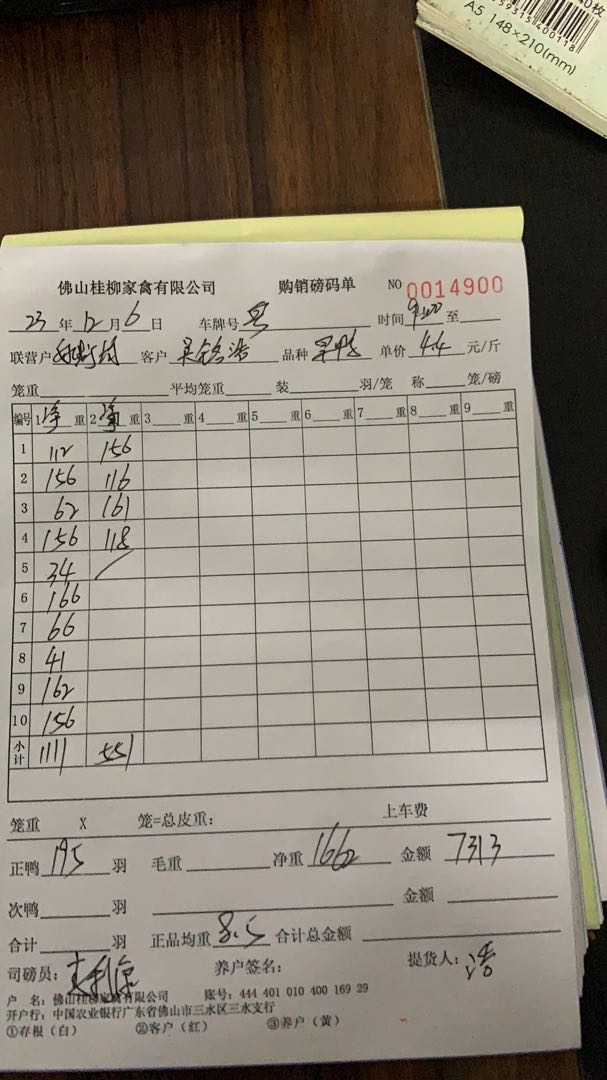 A5 148×210(mm)
佛山桂柳家禽有限公司 购销磅码单 NO 0014900
23 年 12 月 6 日 车牌号 时间 9:00 至
联营户 客户 吴铭浩 品种 单价 4.4 元/斤
笼重 平均笼重 装 羽/笼 称 笼/磅
编号 1 净 重 2 净 重 3 重 4 重 5 重 6 重 7 重 8 重 9 重
1 112 156
2 156 116
3 62 161
4 156 118
5 34
6 166
7 66
8 41
9 162
10 156
小计 1111 551
笼重 X 笼=总皮重: 上车费
正鸭 195 羽 毛重 净重 1662 金额 7313
次鸭 羽 金额
合计 羽 正品均重 8.5 合计总金额
司磅员: 养户签名: 提货人: 浩
户 名: 佛山桂柳家禽有限公司 账号: 444 401 010 400 169 29
开户行: 中国农业银行广东省佛山市三水区三水支行
①存根(白) ②客户(红) ③养户(黄)